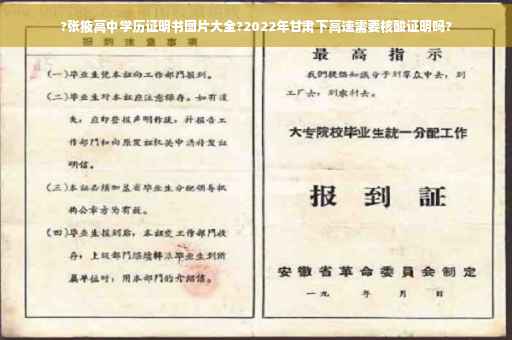 ?张掖高中学历证明书图片大全?2022年甘肃下高速需要核酸证明吗?
报到注意事项
(一)毕业生凭本证向工作部门报到。
(二)毕业生对本证应注意保存。如有遗
失,应即登报声明作废,并报告工
作部门和向原发证机关申请补发证
明信。
(三)本证必须加盖省毕业生分配领导机
构公章方为有效。
(四)毕业生报到后,本证交工作部门收
存,上级部门继续转派毕业生到所
属单位时,用本部门的介绍信。
最高指示
我们提倡知识分子到群众中去,到
工厂去,到农村去。
大专院校毕业生統一分配工作
报到証
安徽省革命委員会制定
一九 年 月 日